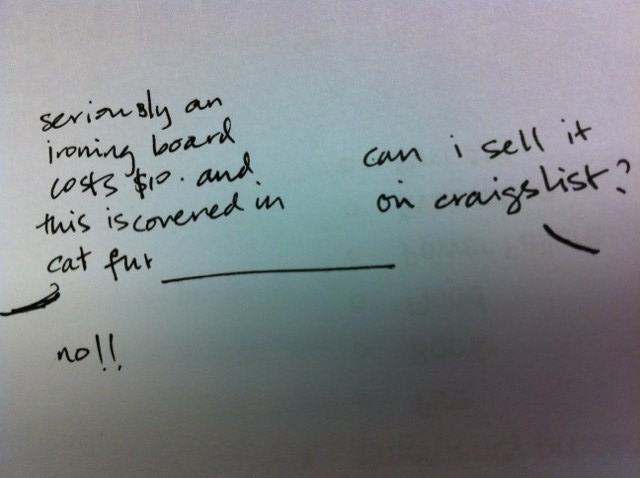 seriously an
ironing board
costs $10. and
this is covered in
cat fur
no!!
can i sell it
on craigslist?